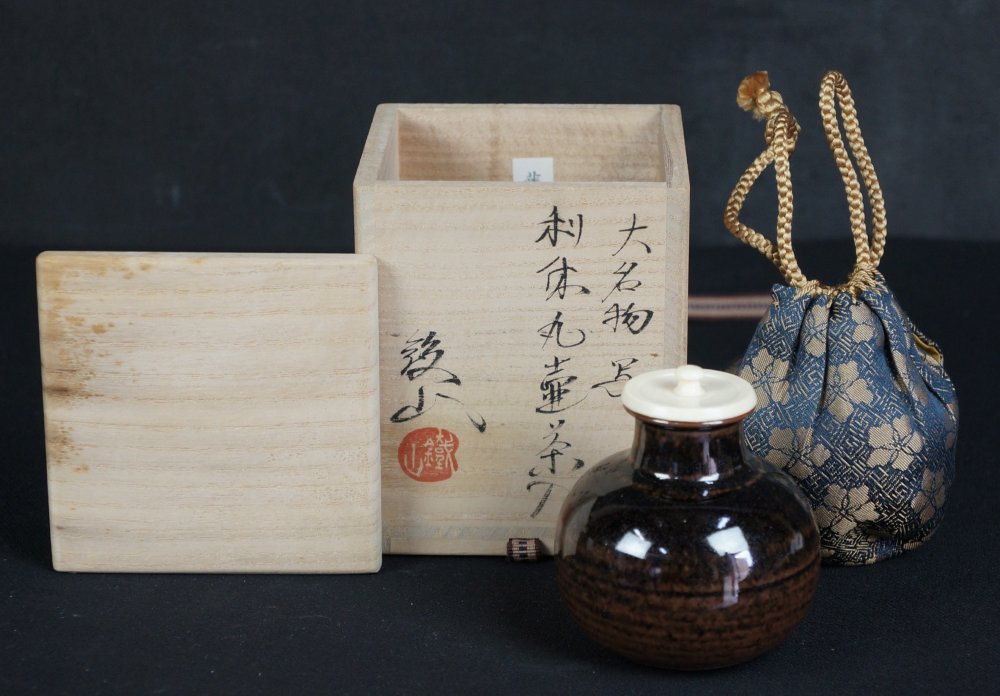 大名物 写
利休丸壷茶入
鐵山